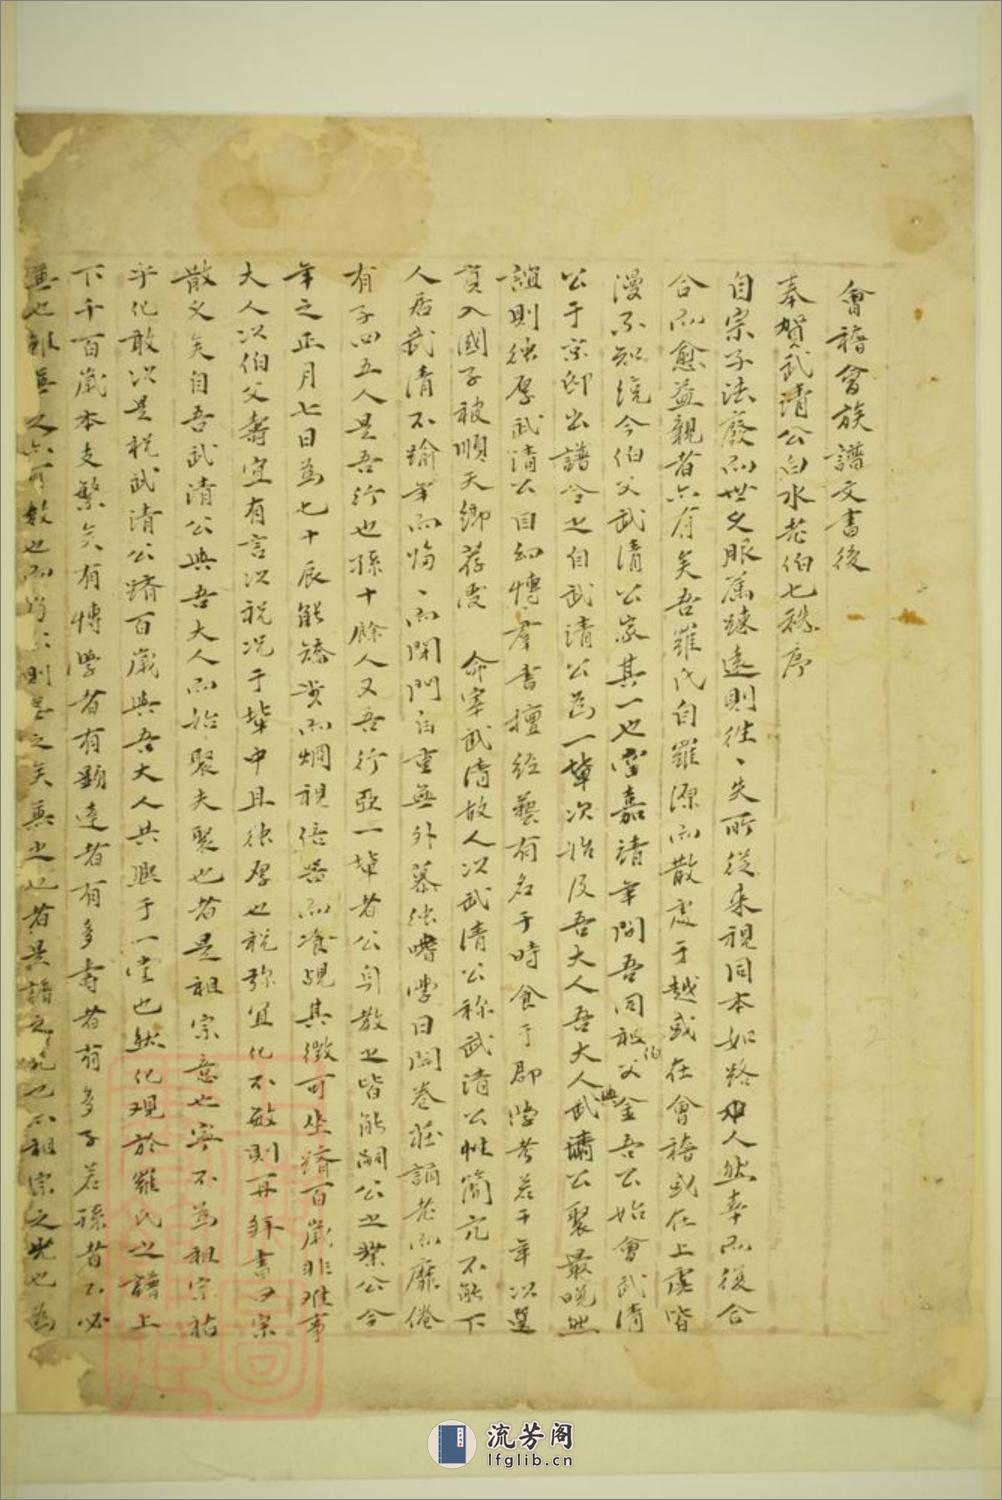 會稽會族譜文書後
奉賀武清公白水老伯七秩序
自宗子法廢而世之服屬疎遠則徃、失所從来視同本如路人然幸而復合
合而愈益親者亦有矣吾羅氏自羅源而散處于越或在會稽或在上虞皆
漫不知統今伯父武清公家其一也當嘉靖年間吾同祖伯父金吾公始會武清
公于京邸出譜合之自武清公為一輩次始及吾大人吾大人與武清公聚最晚然
誼則獨厚武清公自幼博羣書擅經藝有名于時食于郡庠者若干年以選
貢入國子被順天鄉荐受 命宰武清故人以武清公称武清公性簡亢不能下
人居武清不踰年而歸、而閉門自重無外慕獨嗜學日開卷莊誦老而靡倦
有子四五人是吾行也孫十餘人又吾行亞一輩者公身教之皆能嗣公之業公今
年之正月七日為七十辰能矯步而烱視倍善而飡覘其徵可坐躋百歲非难事
大人以伯父壽宜有言以祝况于輩中且獨厚也祝弥宜化不敏則再拜書曰宗
散久矣自吾武清公與吾大人而始聚夫聚也者是祖宗意也寧不為祖宗祜
乎化敢以是祝武清公躋百歲與吾大人共熙于一堂也然化观於羅氏之譜上
下千百歲本支繁矣有博學者有顯達者有多壽者有多子若孫者不必
兼也雖無之亦可教也而 則 之矣兼之也者是譜之光也亦祖宗之光也為
流芳阁
lfglib.cn